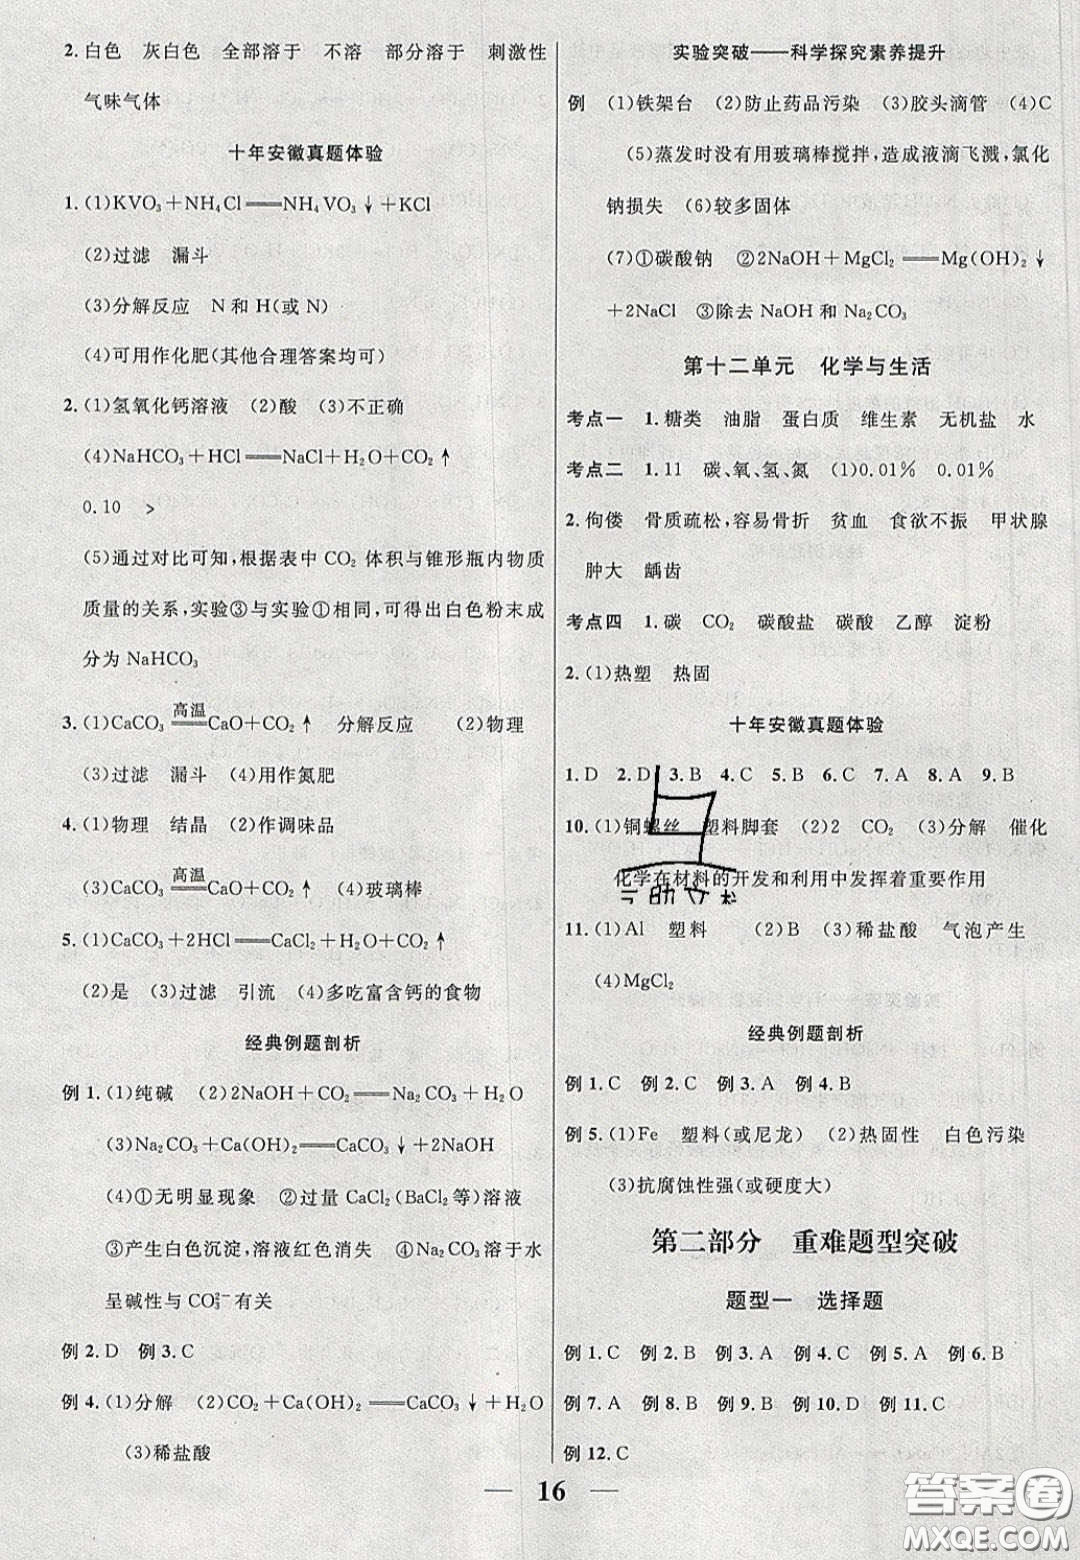 2.白色　灰白色　全部溶于　不溶　部分溶于　刺激性
气味气体
十年安徽真题体验
1.(1)KVO₃+NH₄Cl══NH₄VO₃↓+KCl
(2)过滤　漏斗
(3)分解反应　N和H(或N)
(4)可用作化肥(其他合理答案均可)
2.(1)氢氧化钙溶液　(2)酸　(3)不正确
(4)NaHCO₃+HCl══NaCl+H₂O+CO₂↑
0.10　>
(5)通过对比可知,根据表中CO₂体积与锥形瓶内物质
质量的关系,实验③与实验①相同,可得出白色粉末成
分为NaHCO₃
3.(1)CaCO₃ 高温══ CaO+CO₂↑　分解反应　(2)物理
(3)过滤　漏斗　(4)用作氮肥
4.(1)物理　结晶　(2)作调味品
(3)CaCO₃ 高温══ CaO+CO₂↑　(4)玻璃棒
5.(1)CaCO₃+2HCl══CaCl₂+H₂O+CO₂↑
(2)是　(3)过滤　引流　(4)多吃富含钙的食物
经典例题剖析
例1.(1)纯碱　(2)2NaOH+CO₂══Na₂CO₃+H₂O
(3)Na₂CO₃+Ca(OH)₂══CaCO₃↓+2NaOH
(4)①无明显现象　②过量CaCl₂(BaCl₂等)溶液
③产生白色沉淀,溶液红色消失　④Na₂CO₃溶于水
呈碱性与CO₃²⁻有关
例2.D　例3.C
例4.(1)分解　(2)CO₂+Ca(OH)₂══CaCO₃↓+H₂O
(3)稀盐酸
实验突破——科学探究素养提升
例　(1)铁架台　(2)防止药品污染　(3)胶头滴管　(4)C
(5)蒸发时没有用玻璃棒搅拌,造成液滴飞溅,氯化
钠损失　(6)较多固体
(7)①碳酸钠　②2NaOH+MgCl₂══Mg(OH)₂↓
+2NaCl　③除去NaOH和Na₂CO₃
第十二单元　化学与生活
考点一　1.糖类　油脂　蛋白质　维生素　无机盐　水
考点二　1.11　碳、氧、氢、氮　(1)0.01%　0.01%
2.佝偻　骨质疏松,容易骨折　贫血　食欲不振　甲状腺
肿大　龋齿
考点四　1.碳　CO₂　碳酸盐　碳酸　乙醇　淀粉
2.(1)热塑　热固
十年安徽真题体验
1.D　2.D　3.B　4.C　5.B　6.C　7.A　8.A　9.B
10.(1)铜螺丝　塑料脚套　(2)2　CO₂　(3)分解　催化
化学在材料的开发和利用中发挥着重要作用
11.(1)Al　塑料　(2)B　(3)稀盐酸　气泡产生
(4)MgCl₂
经典例题剖析
例1.C　例2.C　例3.A　例4.B
例5.(1)Fe　塑料(或尼龙)　(2)热固性　白色污染
(3)抗腐蚀性强(或硬度大)
第二部分　重难题型突破
题型一　选择题
例1.C　例2.B　例3.A　例4.C　例5.A　例6.B
例7.A　例8.B　例9.A　例10.D　例11.C
例12.C
16
答案圈
MXQE.COM